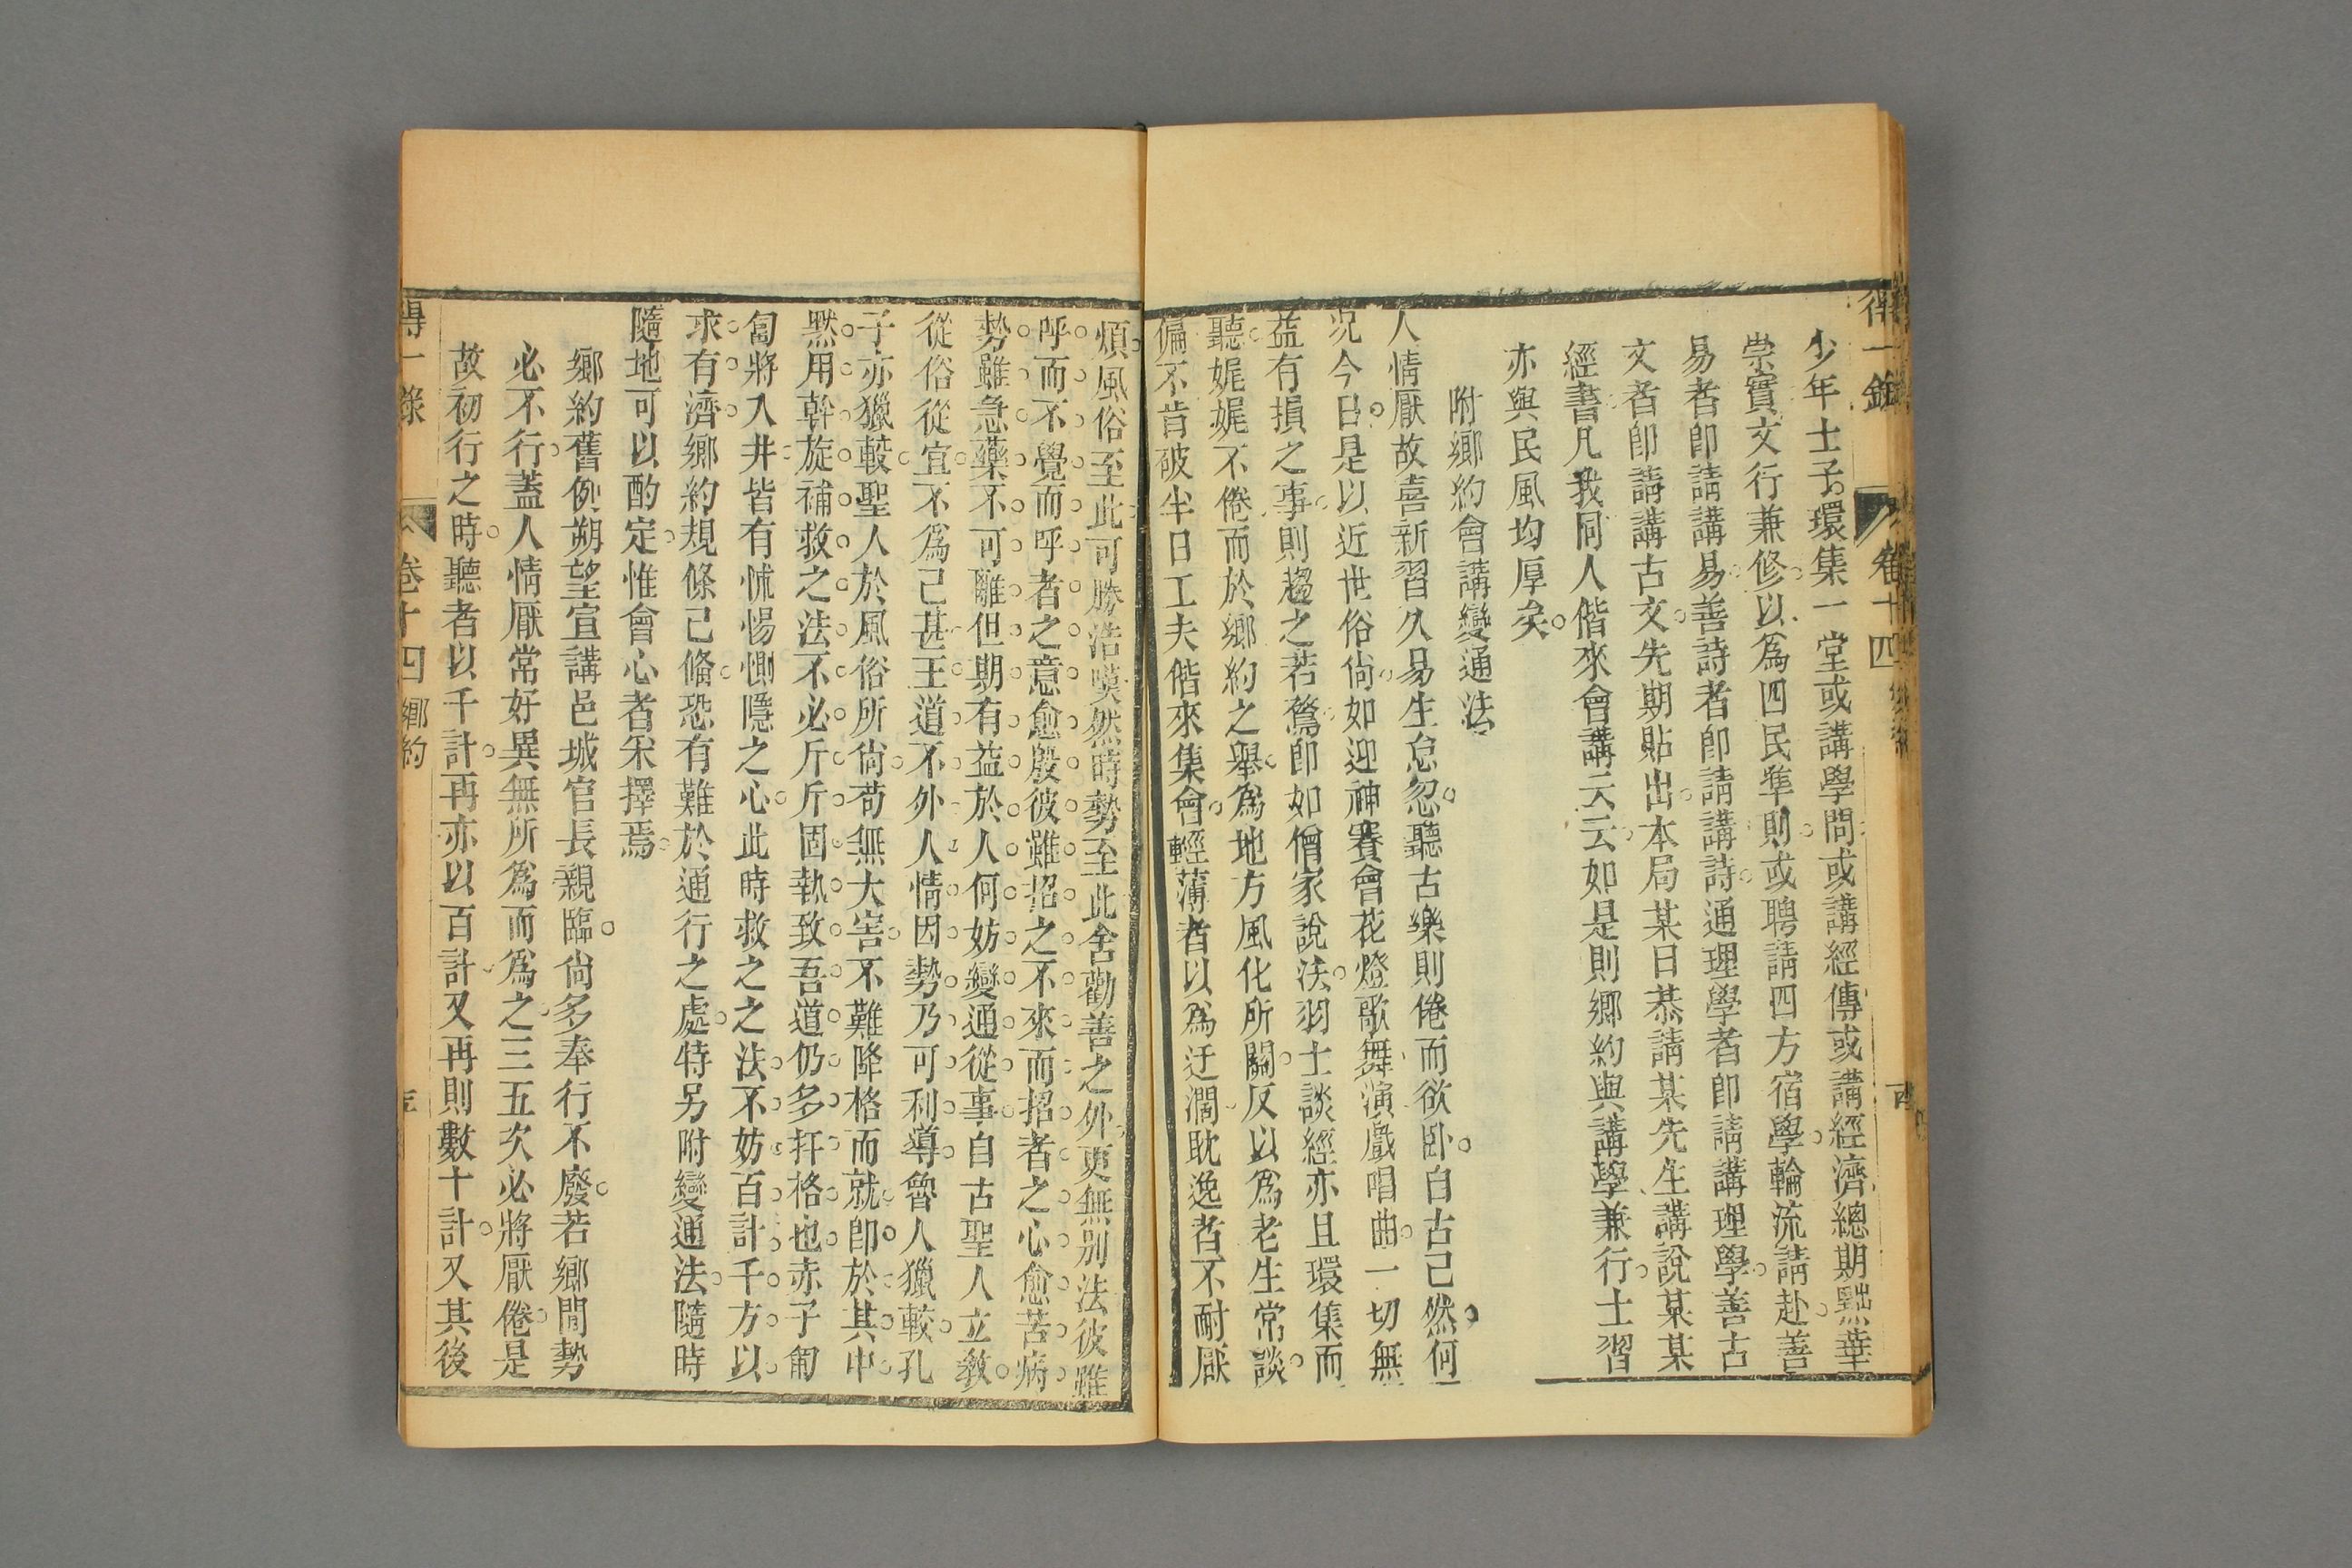 得一錄
卷十四
少年士子環集一堂或講學問或講經傳或講經濟總期黜華
崇實文行兼修以為四民準則或聘請四方宿學輪流請赴善
易者卽請講易善詩者卽請講詩通理學者卽請講理學善古
文者卽請講古文先期貼出本局某日恭請某先生講說某某
經書凡我同人偕來會講云云如是則鄉約與講學兼行士習
亦與民風均厚矣
附鄉約會講變通法
人情厭故喜新習久易生怠忽聽古樂則倦而欲卧自古已然何
況今日是以近世俗尙如迎神賽會花燈歌舞演戲唱曲一切無
益有損之事則趨之若鶩卽如僧家說法羽士談經亦且環集而
聽娓娓不倦而於鄉約之舉為地方風化所關反以為老生常談
偏不肯破半日工夫偕來集會輕薄者以為迂濶耽逸者不耐厭
煩風俗至此可勝浩嘆然時勢至此舍勸善之外更無别法彼雖
呼而不覺而呼者之意愈殷彼雖招之不來而招者之心愈苦病
勢雖急藥不可離但期有益於人何妨變通從事自古聖人立敎
從俗從宜不為已甚王道不外人情因勢乃可利導魯人獵較孔
子亦獵較聖人於風俗所尙苟無大害不難降格而就卽於其中
黙用幹旋補救之法不必斤斤固執致吾道仍多扞格也赤子匍
匐將入井皆有怵惕惻隱之心此時救之之法不妨百計千方以
求有濟鄉約規條已偹恐有難於通行之處特另附變通法隨時
隨地可以酌定惟會心者采擇焉
鄉約舊例朔望宣講邑城官長親臨尙多奉行不廢若鄉間勢
必不行蓋人情厭常好異無所為而為之三五次必將厭倦是
故初行之時聽者以千計再亦以百計又再則數十計又其後
得一錄
卷十四
鄉約